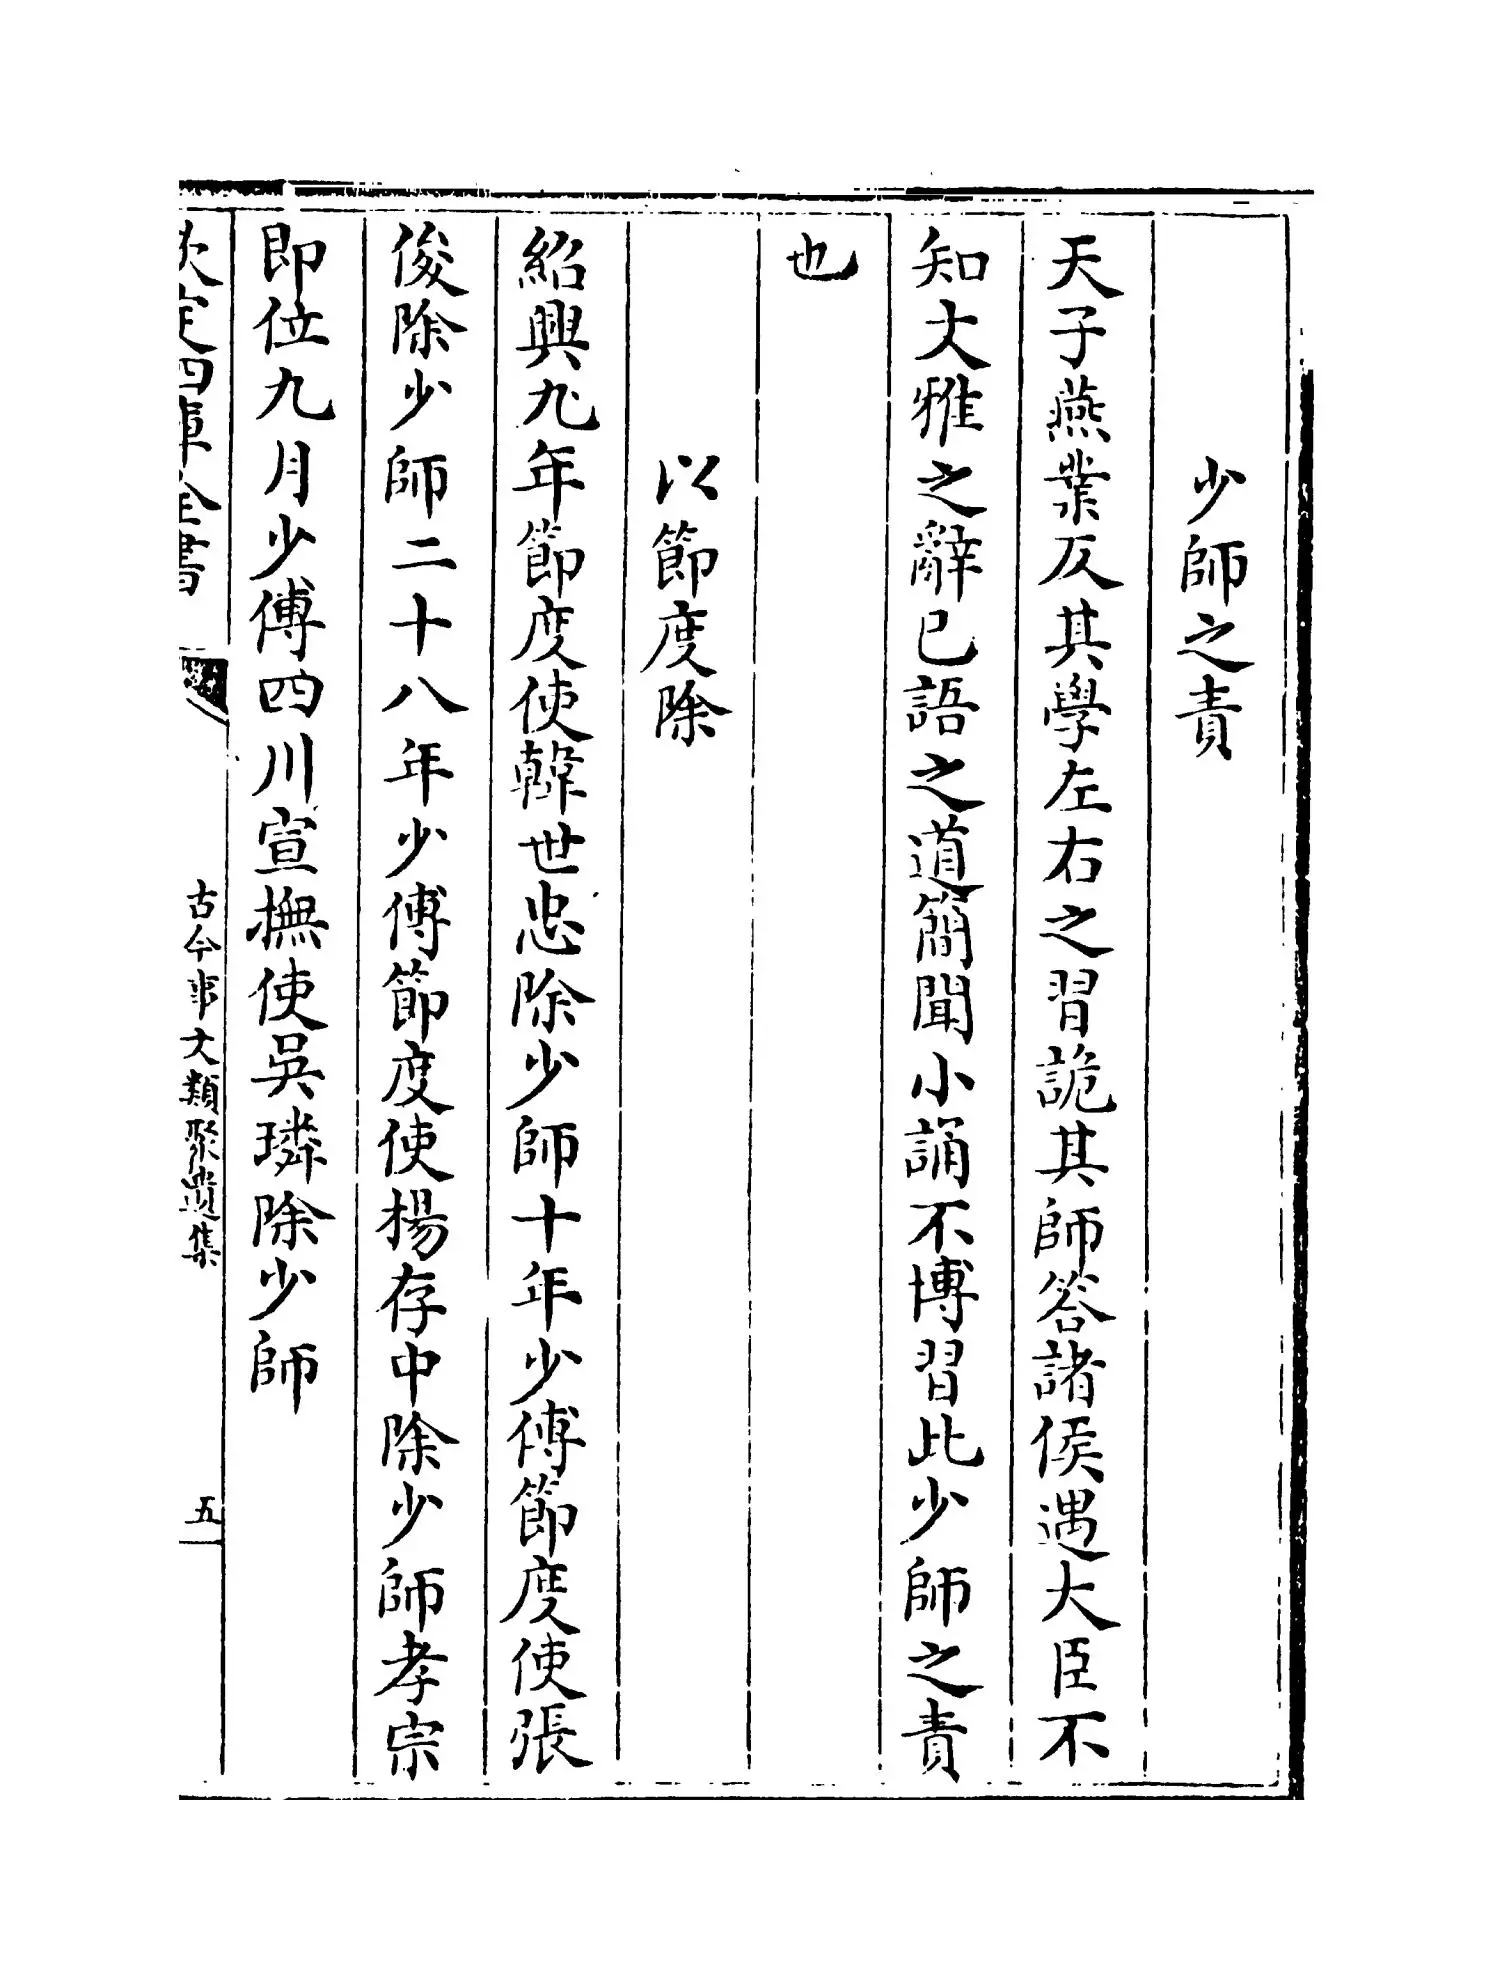 少師之責
天子燕業反其學左右之習詭其師答諸侯遇大臣不
知大雅之辭已語之道簡聞小誦不博習此少師之責
也
以節度除
紹興九年節度使韓世忠除少師十年少傅節度使張
俊除少師二十八年少傅節度使楊存中除少師孝宗
即位九月少傅四川宣撫使吳璘除少師
欽定四庫全書
古今事文類聚遺集
五